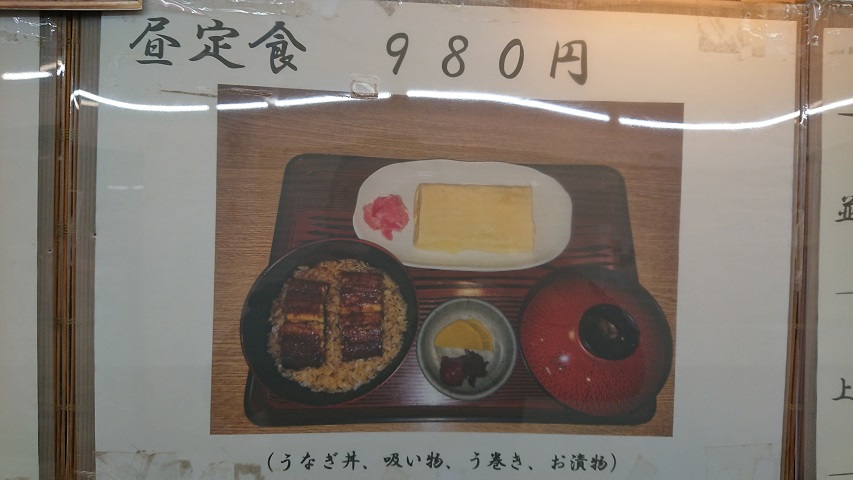 昼定食 980円
(うなぎ丼、吸い物、う巻き、お漬物)
並
上